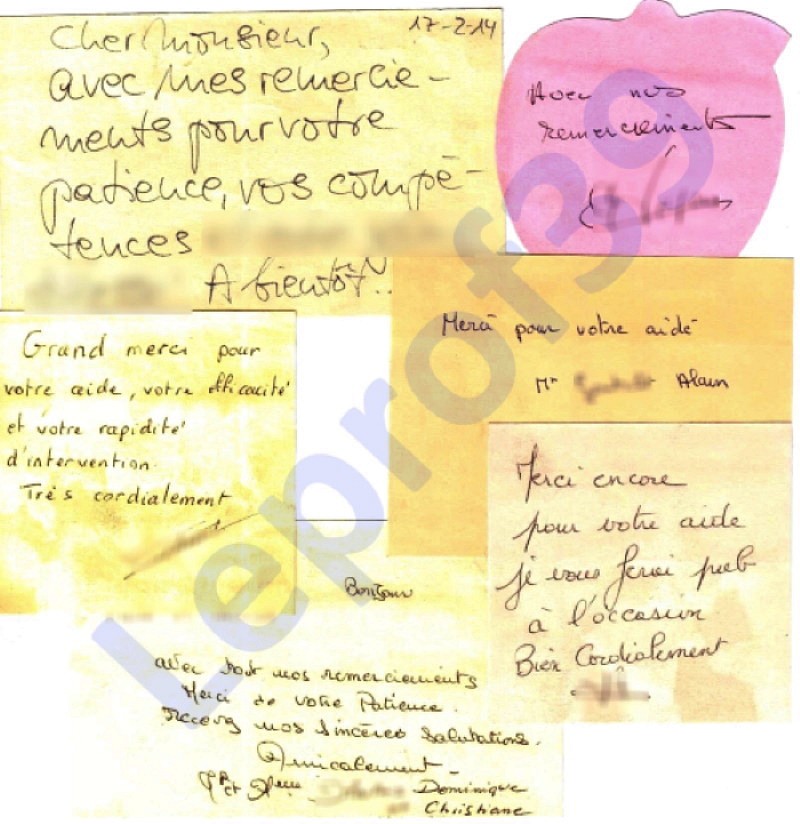 17-2-14
Cher Monsieur,
avec mes remercie-
ments pour votre
patience, vos compé-
tences
A bientôt!..
Avec nos
remerciements
Merci pour votre aidé
Mr Alain
Grand merci pour
votre aide, votre éfficacité
et votre rapidité
d'intervention.
Très cordialement
Merci encore
pour votre aide
je vous ferai pub
à l'occasion
Bien Cordialement
Bonjour
avec tout nos remerciements
Merci de votre Patience.
recevez nos sincères salutations.
Amicalement
et Dominique
Christiane
Leprof39